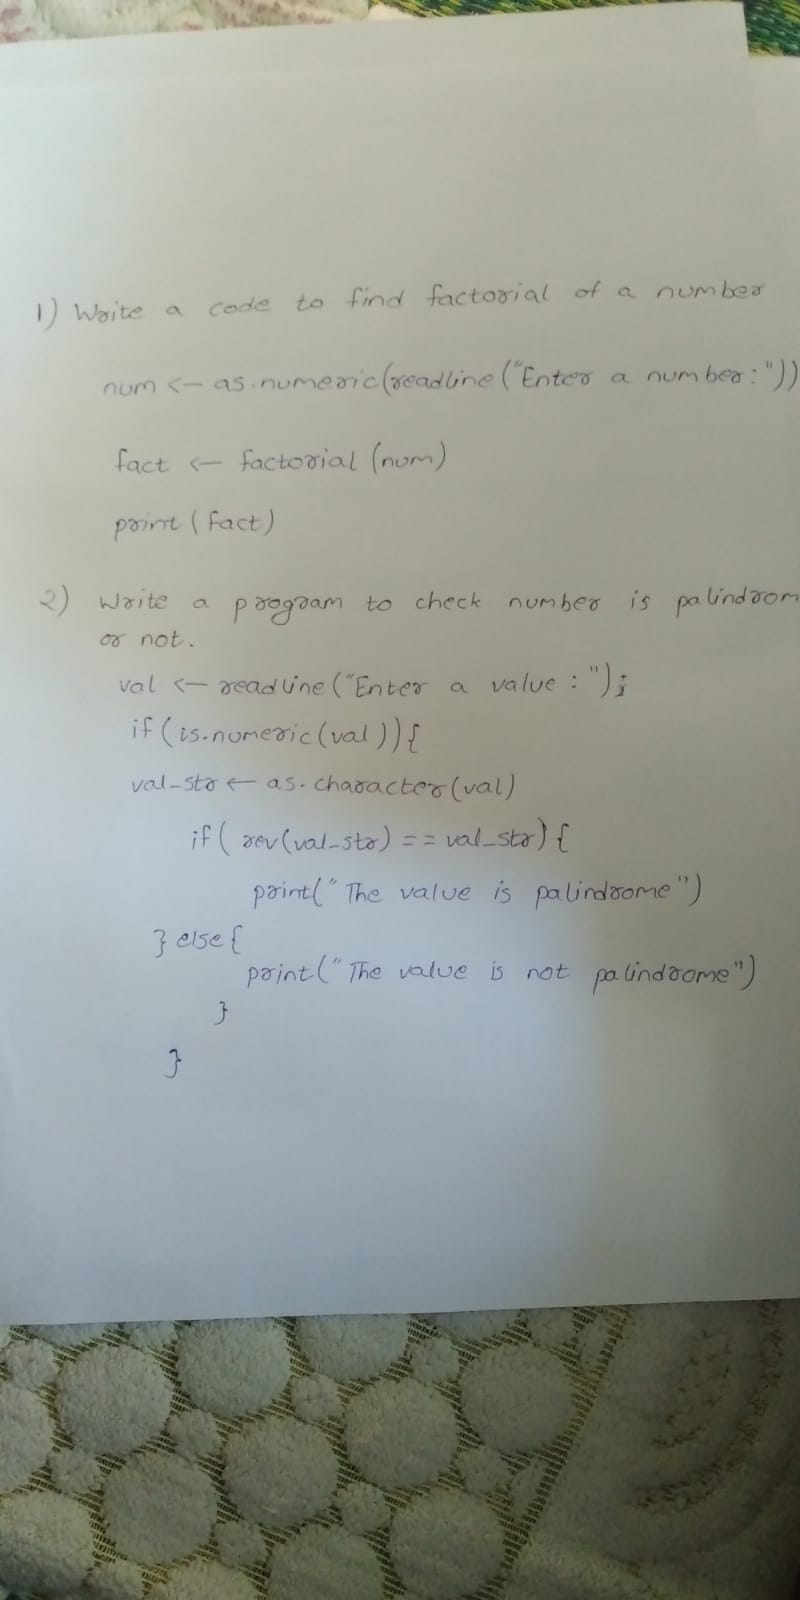 1) Write a code to find factorial of a number
num <- as.numeric(readline("Enter a number:"))
fact <- factorial (num)
print (fact)
2) Write a program to check number is palindrom
or not.
val <- readline ("Enter a value : ");
if (is.numeric(val)){
val_str <- as.character(val)
if ( rev(val_str) == val_str) {
print(" The value is palindrome")
} else {
print(" The value is not palindrome")
}
}